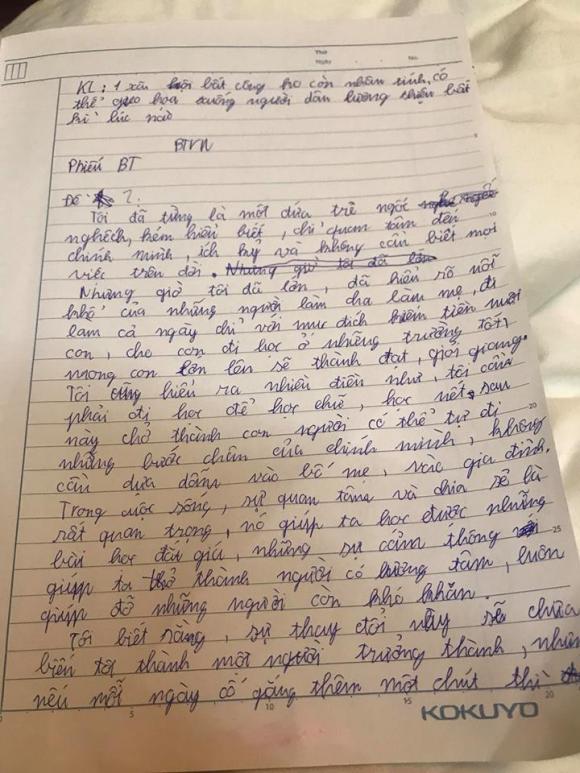 Thứ
Ngày No.
KL: 1 xã hội bất công ko còn nhân tính, có
thể gieo họa xuống người dân lương thiện bất
kì lúc nào
BTVN
Phiếu BT
Đề 2:
Tôi đã từng là một đứa trẻ ngốc
nghếch, kém hiểu biết, chỉ quan tâm đến
chính mình, ích kỷ và không cần biết mọi
việc trên đời. Nhưng giờ tôi đã lớn
Nhưng giờ tôi đã lớn, đã hiểu rõ nỗi
khổ của những người làm cha làm mẹ, đi
làm cả ngày chỉ với mục đích kiếm tiền nuôi
con, cho con đi học ở những trường tốt,
mong con lớn lên sẽ thành đạt, giỏi giang.
Tôi cũng hiểu ra nhiều điền như, tôi cần
phải đi học để học chữ, học nết, sau
này chở thành con người có thể tự đi
những bước chân của chính mình, không
cần dựa dẫm vào bố mẹ, vào gia đình.
Trong cuộc sống, sự quan tâm và chia sẻ là
rất quan trọng, nó giúp ta học được những
bài học đắt giá, những sự cảm thông
giúp ta trở thành người có lương tâm, luôn
giúp đỡ những người còn khó khăn.
Tôi biết rằng, sự thay đổi này sẽ chưa
biến tôi thành một người trưởng thành, nhưn
nếu mỗi ngày cố gắng thêm một chút thì
5 10 15 20
KOKUYO